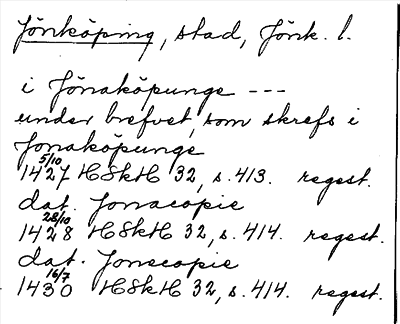 Jönköping, stad, Jönk. l.
i Jönaköpunge ---
under brefvet, som skrefs i
Jonaköpunge
1427 5/10 HSkH 32, s. 413. regest.
dat. Jonacopie
1428 28/10 HSkH 32, s. 414. regest.
dat. Jonecopie
1430 16/7 HSkH 32, s. 414. regest.